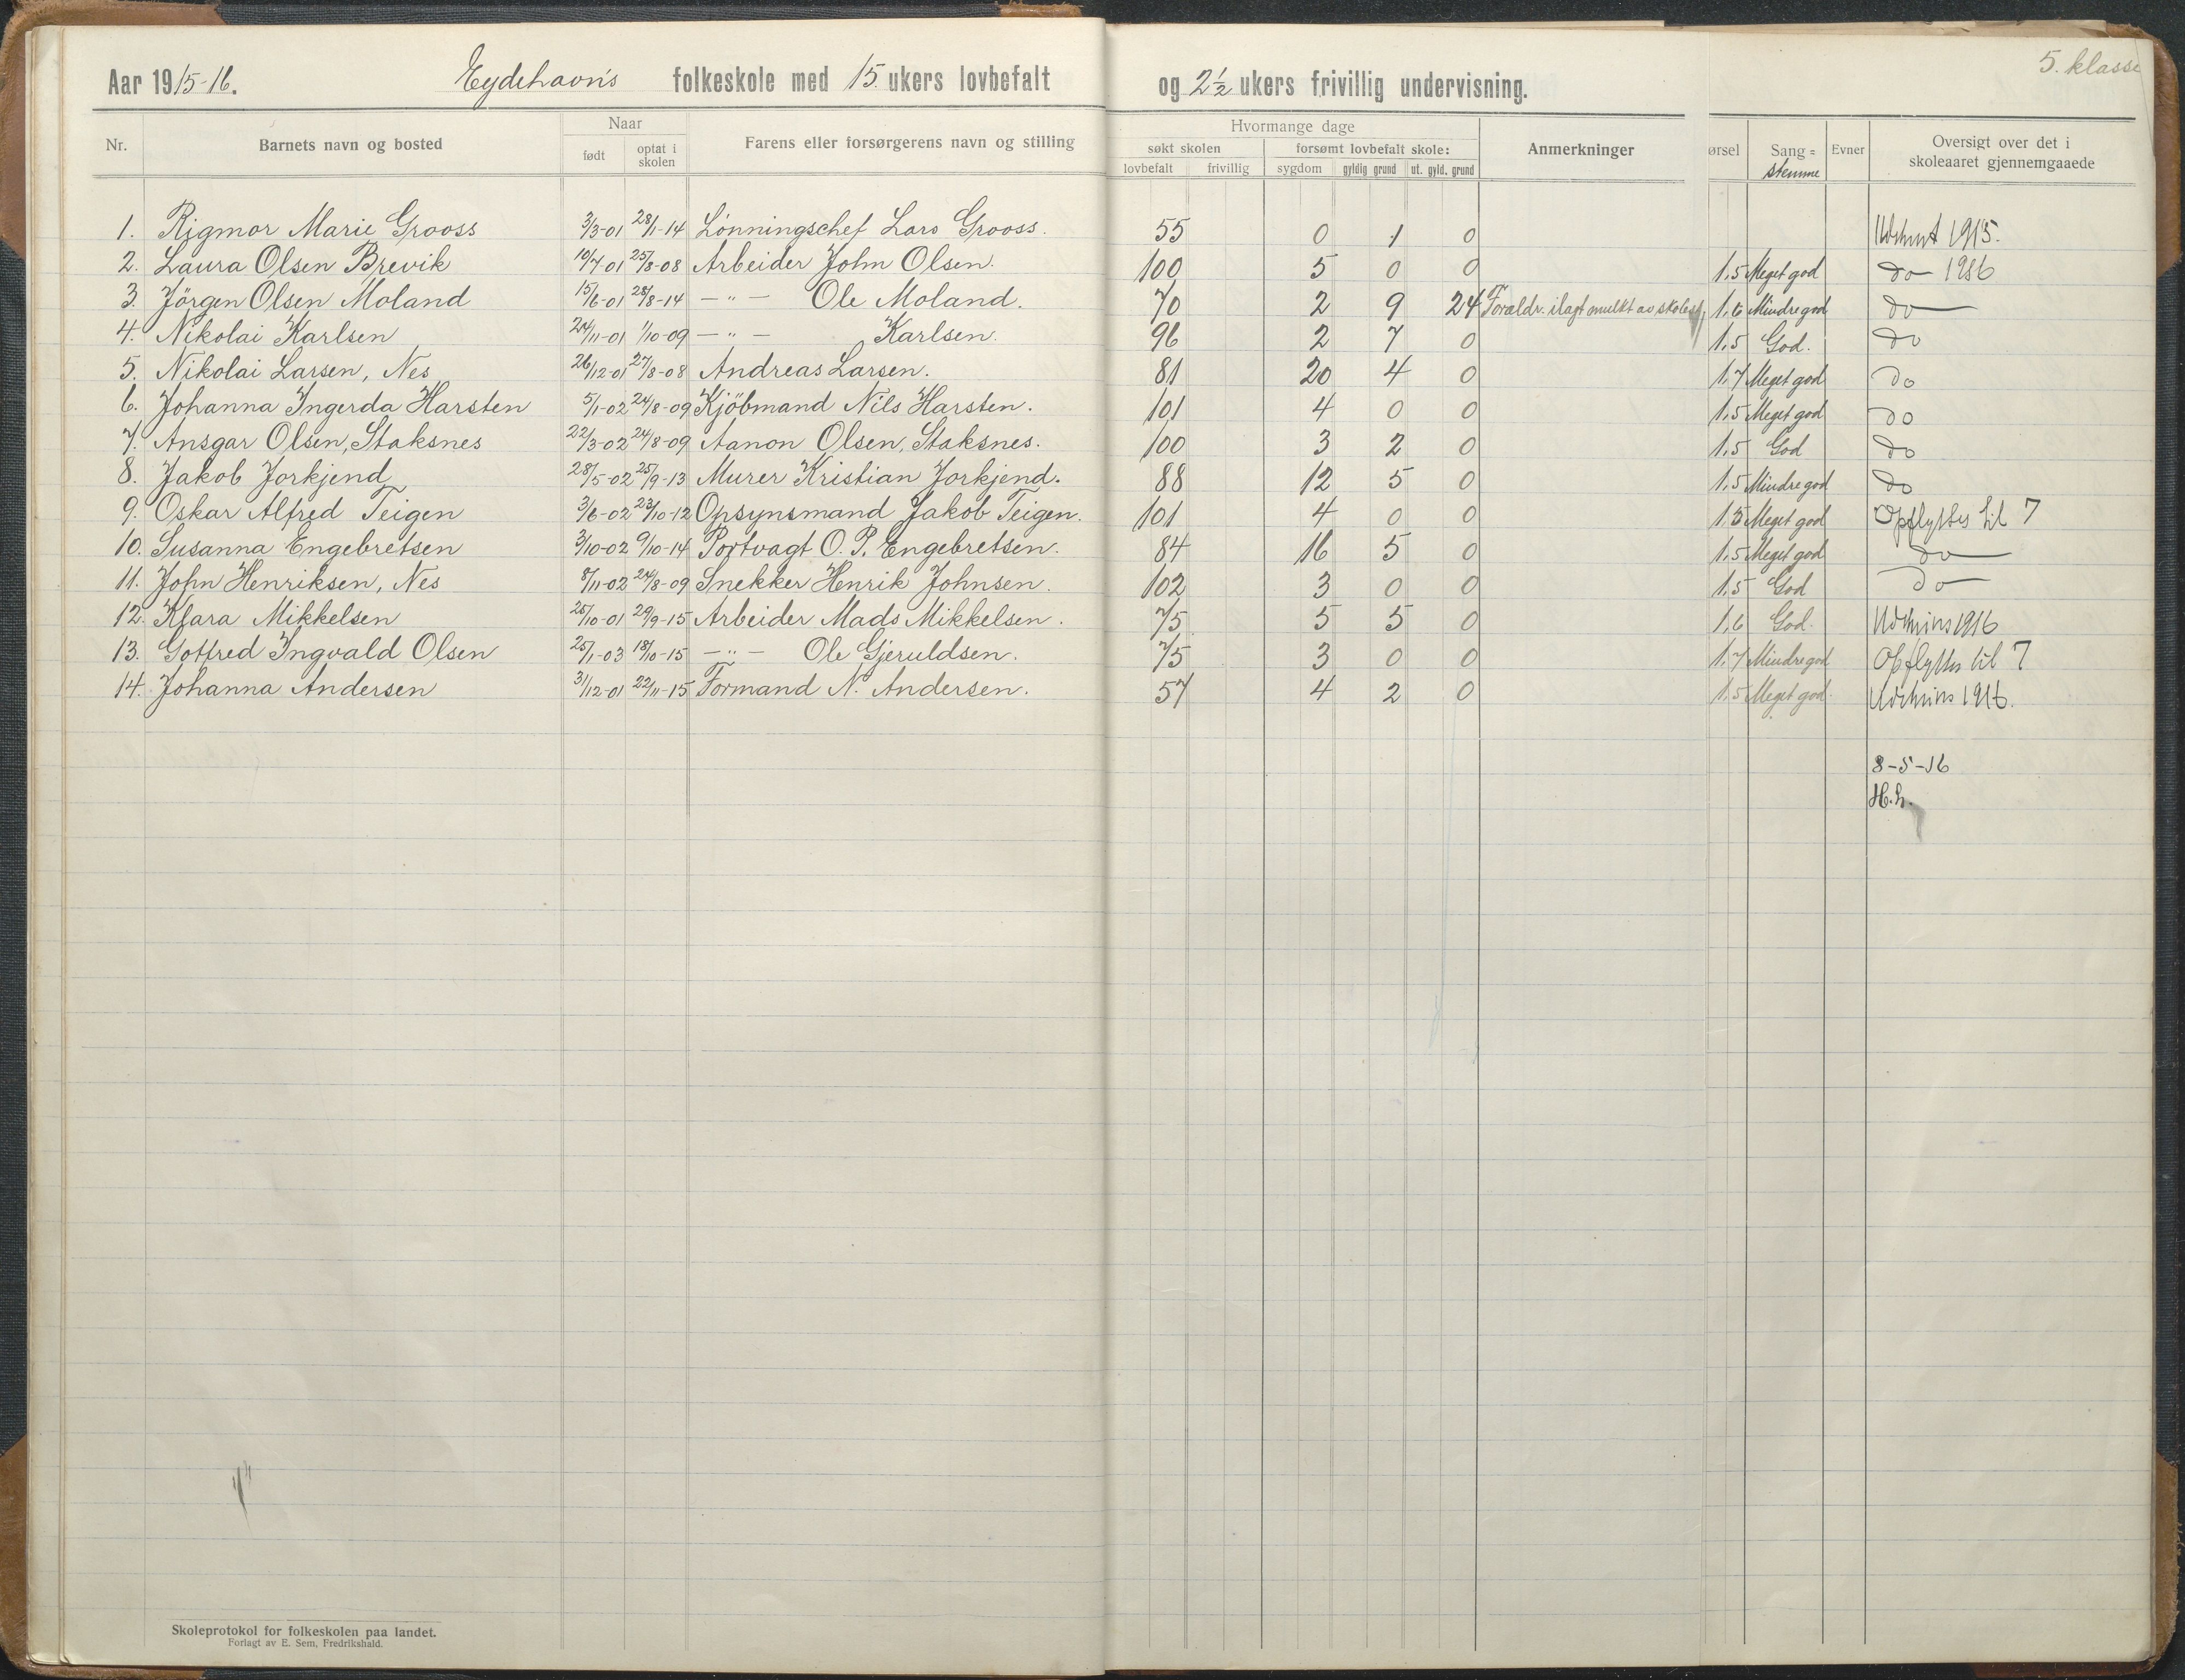 Aar 1915-16. Eydehavns folkeskole med 15 ukers lovbefalt og 2½ ukers frivillig undervisning. 5. klasse
Nr. Barnets navn og bosted Naar født optat i skolen Farens eller forsørgerens navn og stilling Hvormange dage søkt skolen lovbefalt frivillig forsømt lovbefalt skole: sygdom gyldig grund ut. gyld. grund Anmerkninger ørsel Sang= stemme Evner Oversigt over det i skoleaaret gjennemgaaede
1. Rigmor Marie Grooss 3/3-01 28/1-14 Lønningschef Lars Grooss. 55 0 1 0 1915.
2. Laura Olsen Brevik 10/4 01 25/8-08 Arbeider John Olsen. 100 5 0 0 1,5 Meget god do 1916
3. Jörgen Olsen Moland 15/6-01 28/8-14 —"— Ole Moland. 70 2 9 24 Forældr. ilagt mulkt av 1,6 Mindre god do
4. Nikolai Karlsen 24/11-01 1/10-09 —"— Karlsen. 96 2 7 0 1,5 God. do
5. Nikolai Larsen, Nes 26/12-01 27/8-08 Andreas Larsen. 81 20 4 0 1,7 Meget god do
6. Johanna Ingerda Harsten 5/1-02 24/8-09 Kjöbmand Nils Harsten. 101 4 0 0 1,5 Meget god do
7. Ansgar Olsen, Staksnes 22/3-02 24/8-09 Aanon Olsen, Staksnes. 100 3 2 0 1,5 God do
8. Jakob Jorkjend 28/5-02 25/9-13 Murer Kristian Jorkjend. 88 12 5 0 1,5 Mindre god do
9. Oskar Alfred Teigen 3/6-02 23/10-12 Opsynsmand Jakob Teigen. 101 4 0 0 Meget god Opflyttes til 7
10. Susanna Engebretsen 3/10-02 9/10-14 Portvagt O. P. Engebretsen. 84 16 5 0 1,5 Meget god do
11. John Henriksen, Nes 8/11-02 24/8-09 Snekker Henrik Johnsen. 102 3 0 0 1,5 God do
12. Klara Mikkelsen 25/10-01 29/9-15 Arbeider Mads Mikkelsen. 75 5 5 0 1,6 God. 1916
13. Gotfred Ingvald Olsen 25/1-03 18/10-15 —"— Ole Gjeruldsen. 75 3 0 0 1,7 Mindre god Opflyttes til 7
14. Johanna Andersen 31/12-01 22/11-15 Formand N. Andersen. 57 4 2 0 1,5 Meget god. 1916.
8-5-16
H.h.
Skoleprotokol for folkeskolen paa landet.
Forlagt av E. Sem, Fredrikshald.